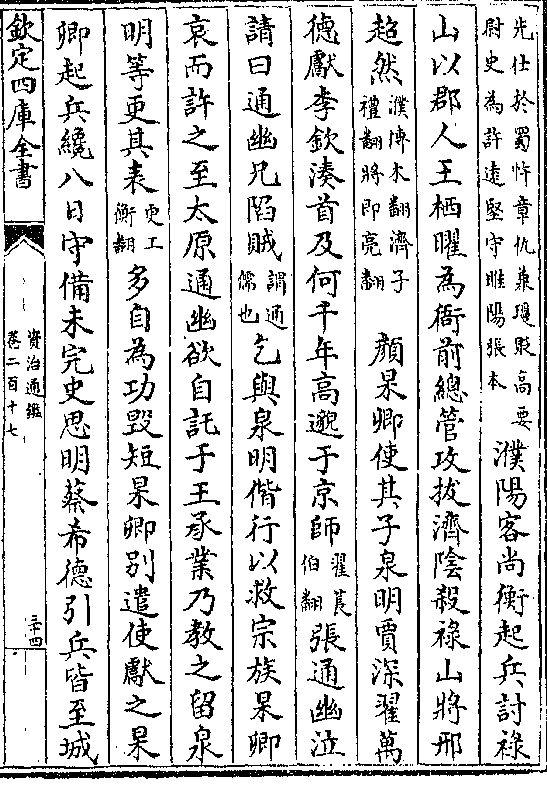 先仕於蜀忤章仇兼瓊貶高要
尉史為許遠堅守睢陽張本
濮陽客尚衡起兵討祿
山以郡人王栖曜為衙前總管攻拔濟陰殺祿山將邢
超然
濮博木翻濟子
禮翻將即亮翻
顔杲卿使其子泉明賈深翟萬
德獻李欽湊首及何千年高邈于京師
翟萇
伯翻
張通幽泣
請曰通幽兄陷賊
謂通
儒也
乞與泉明偕行以救宗族杲卿
哀而許之至太原通幽欲自託于王承業乃教之留泉
明等更其表
更工
衡翻
多自為功毀短杲卿别遣使獻之杲
卿起兵纔八日守備未完史思明蔡希德引兵皆至城
欽定四庫全書
資治通鑑
卷二百十七
三十四